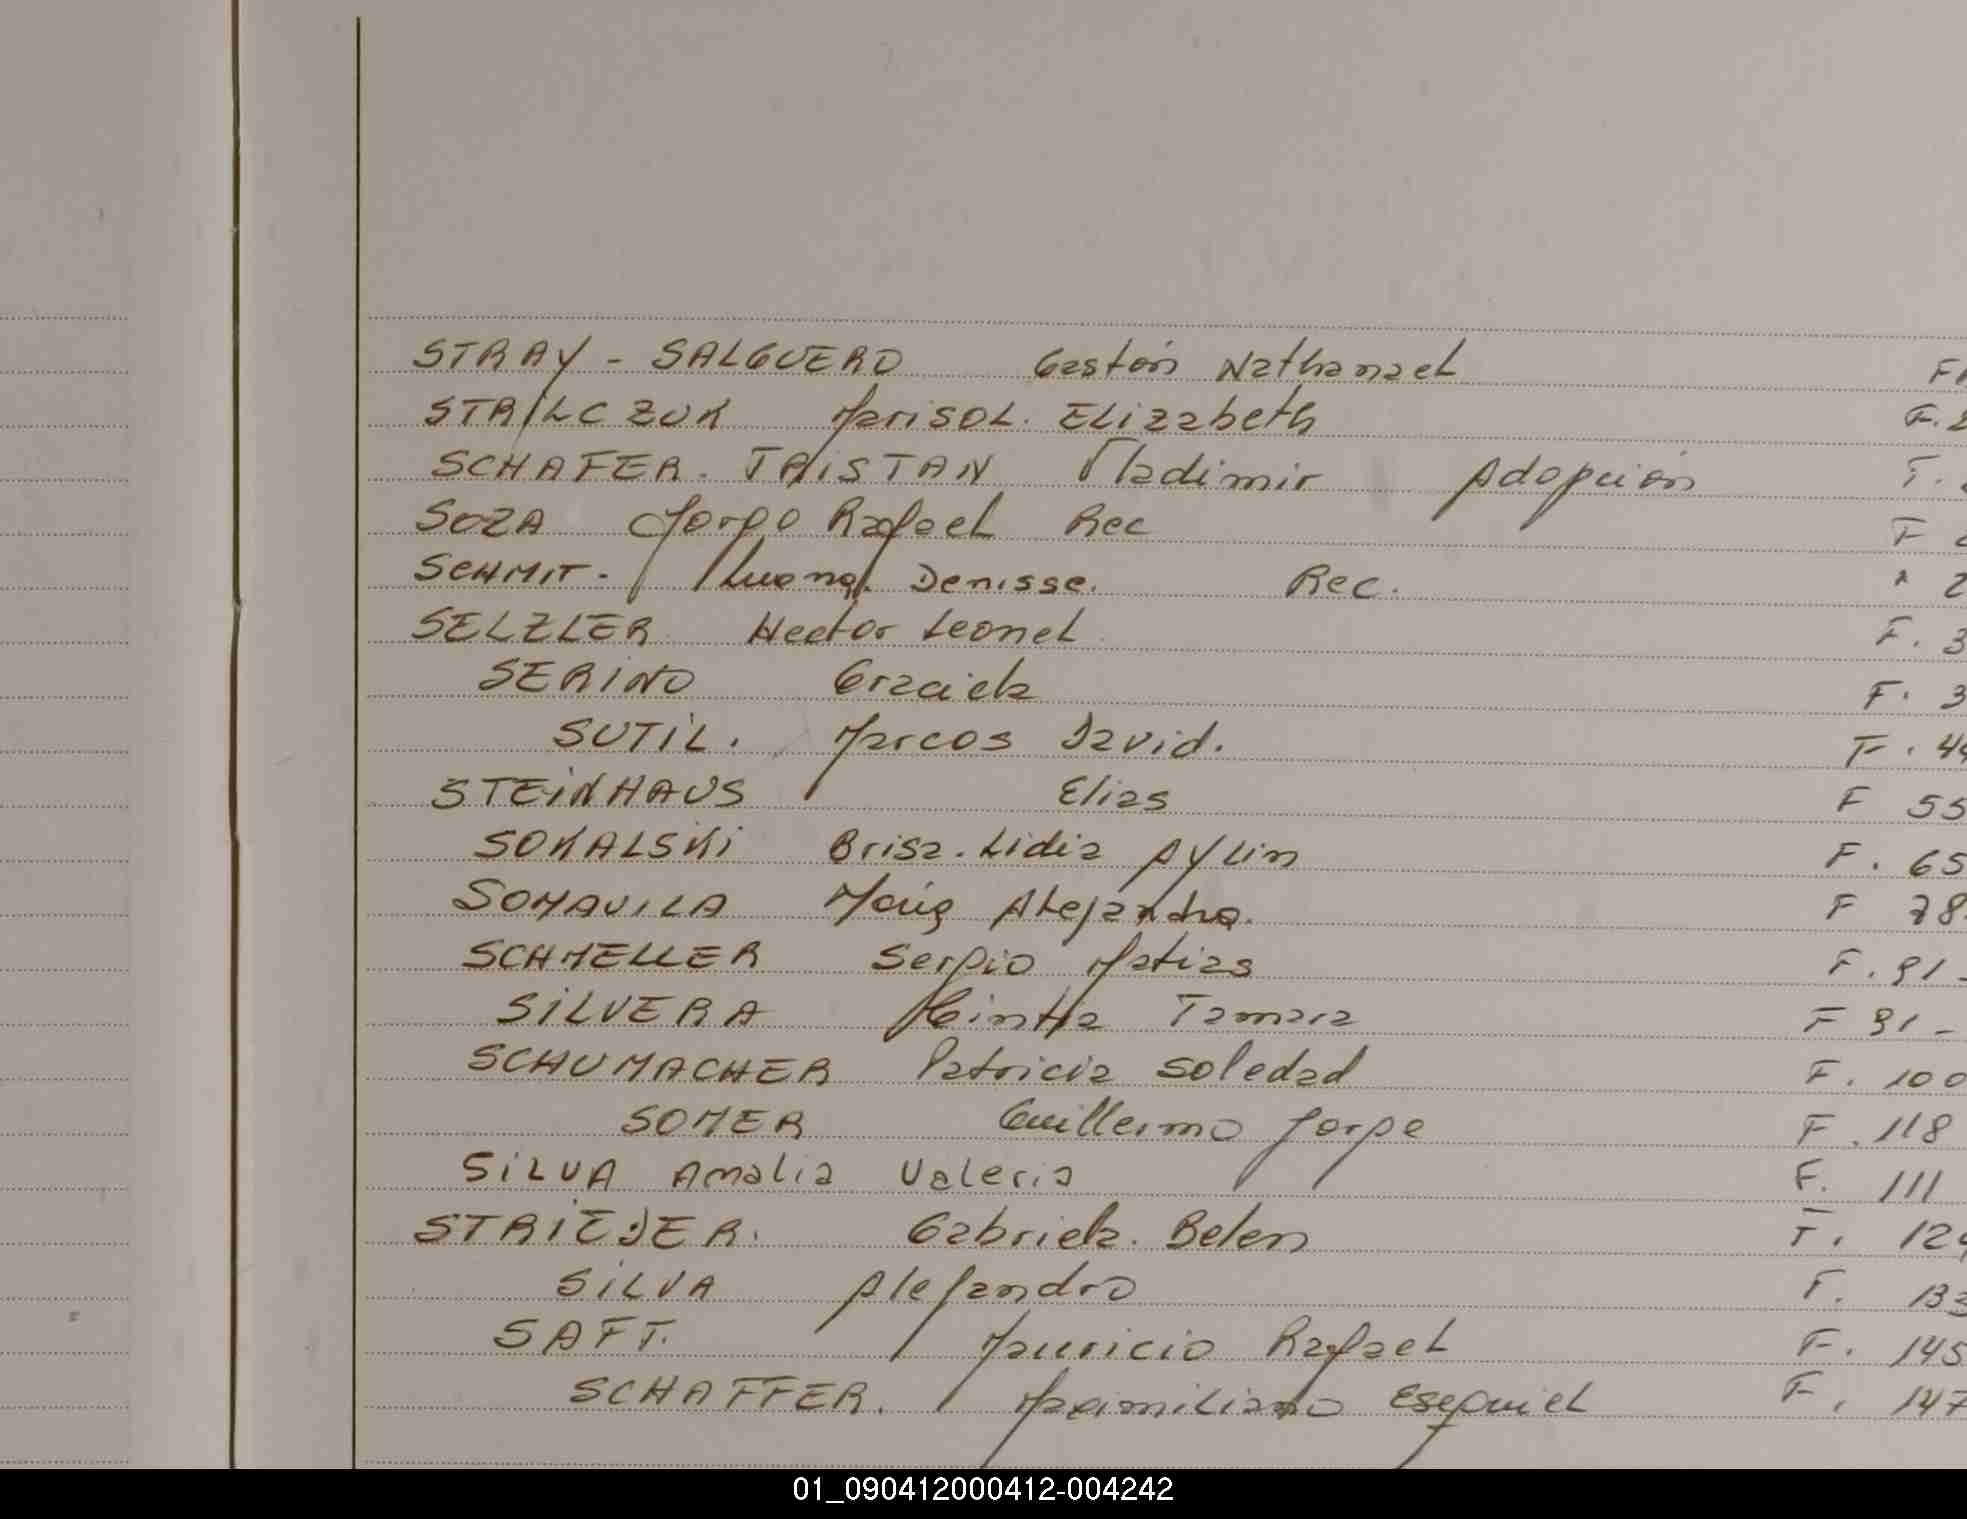 STRAY - SALGUERO Gastón Nathanael
STRILCZUK Marisol. Elizabeth F.
SCHAFER. TRISTAN Vladimir Adopción F.
SOZA Jorge Rafael Rec F
SCHMIT. Luana. Denisse. Rec. " 2
SELZLER Hector Leonel F. 3
SERINO Graciela F. 3
SUTIL. Marcos David. F. 44
STEINHAUS Elias F 55
SOKALSKI Brisa. Lidia Aylin F. 65
SOMAVILA María Alejandra. F 78.
SCHMELLER Sergio Matias F. 91-
SILVERA Cintia Tamara F 91-
SCHUMACHER Patricia Soledad F. 100
SOMER Guillermo Jorge F. 118
SILVA Amalia Valeria F. 111
STRIEJER. Gabriela. Belen F. 124
SILVA Alejandro F. 133
SAFT. Mauricio Rafael F. 145
SCHAFFER. Maximiliano Esequiel F. 147
01_090412000412-004242